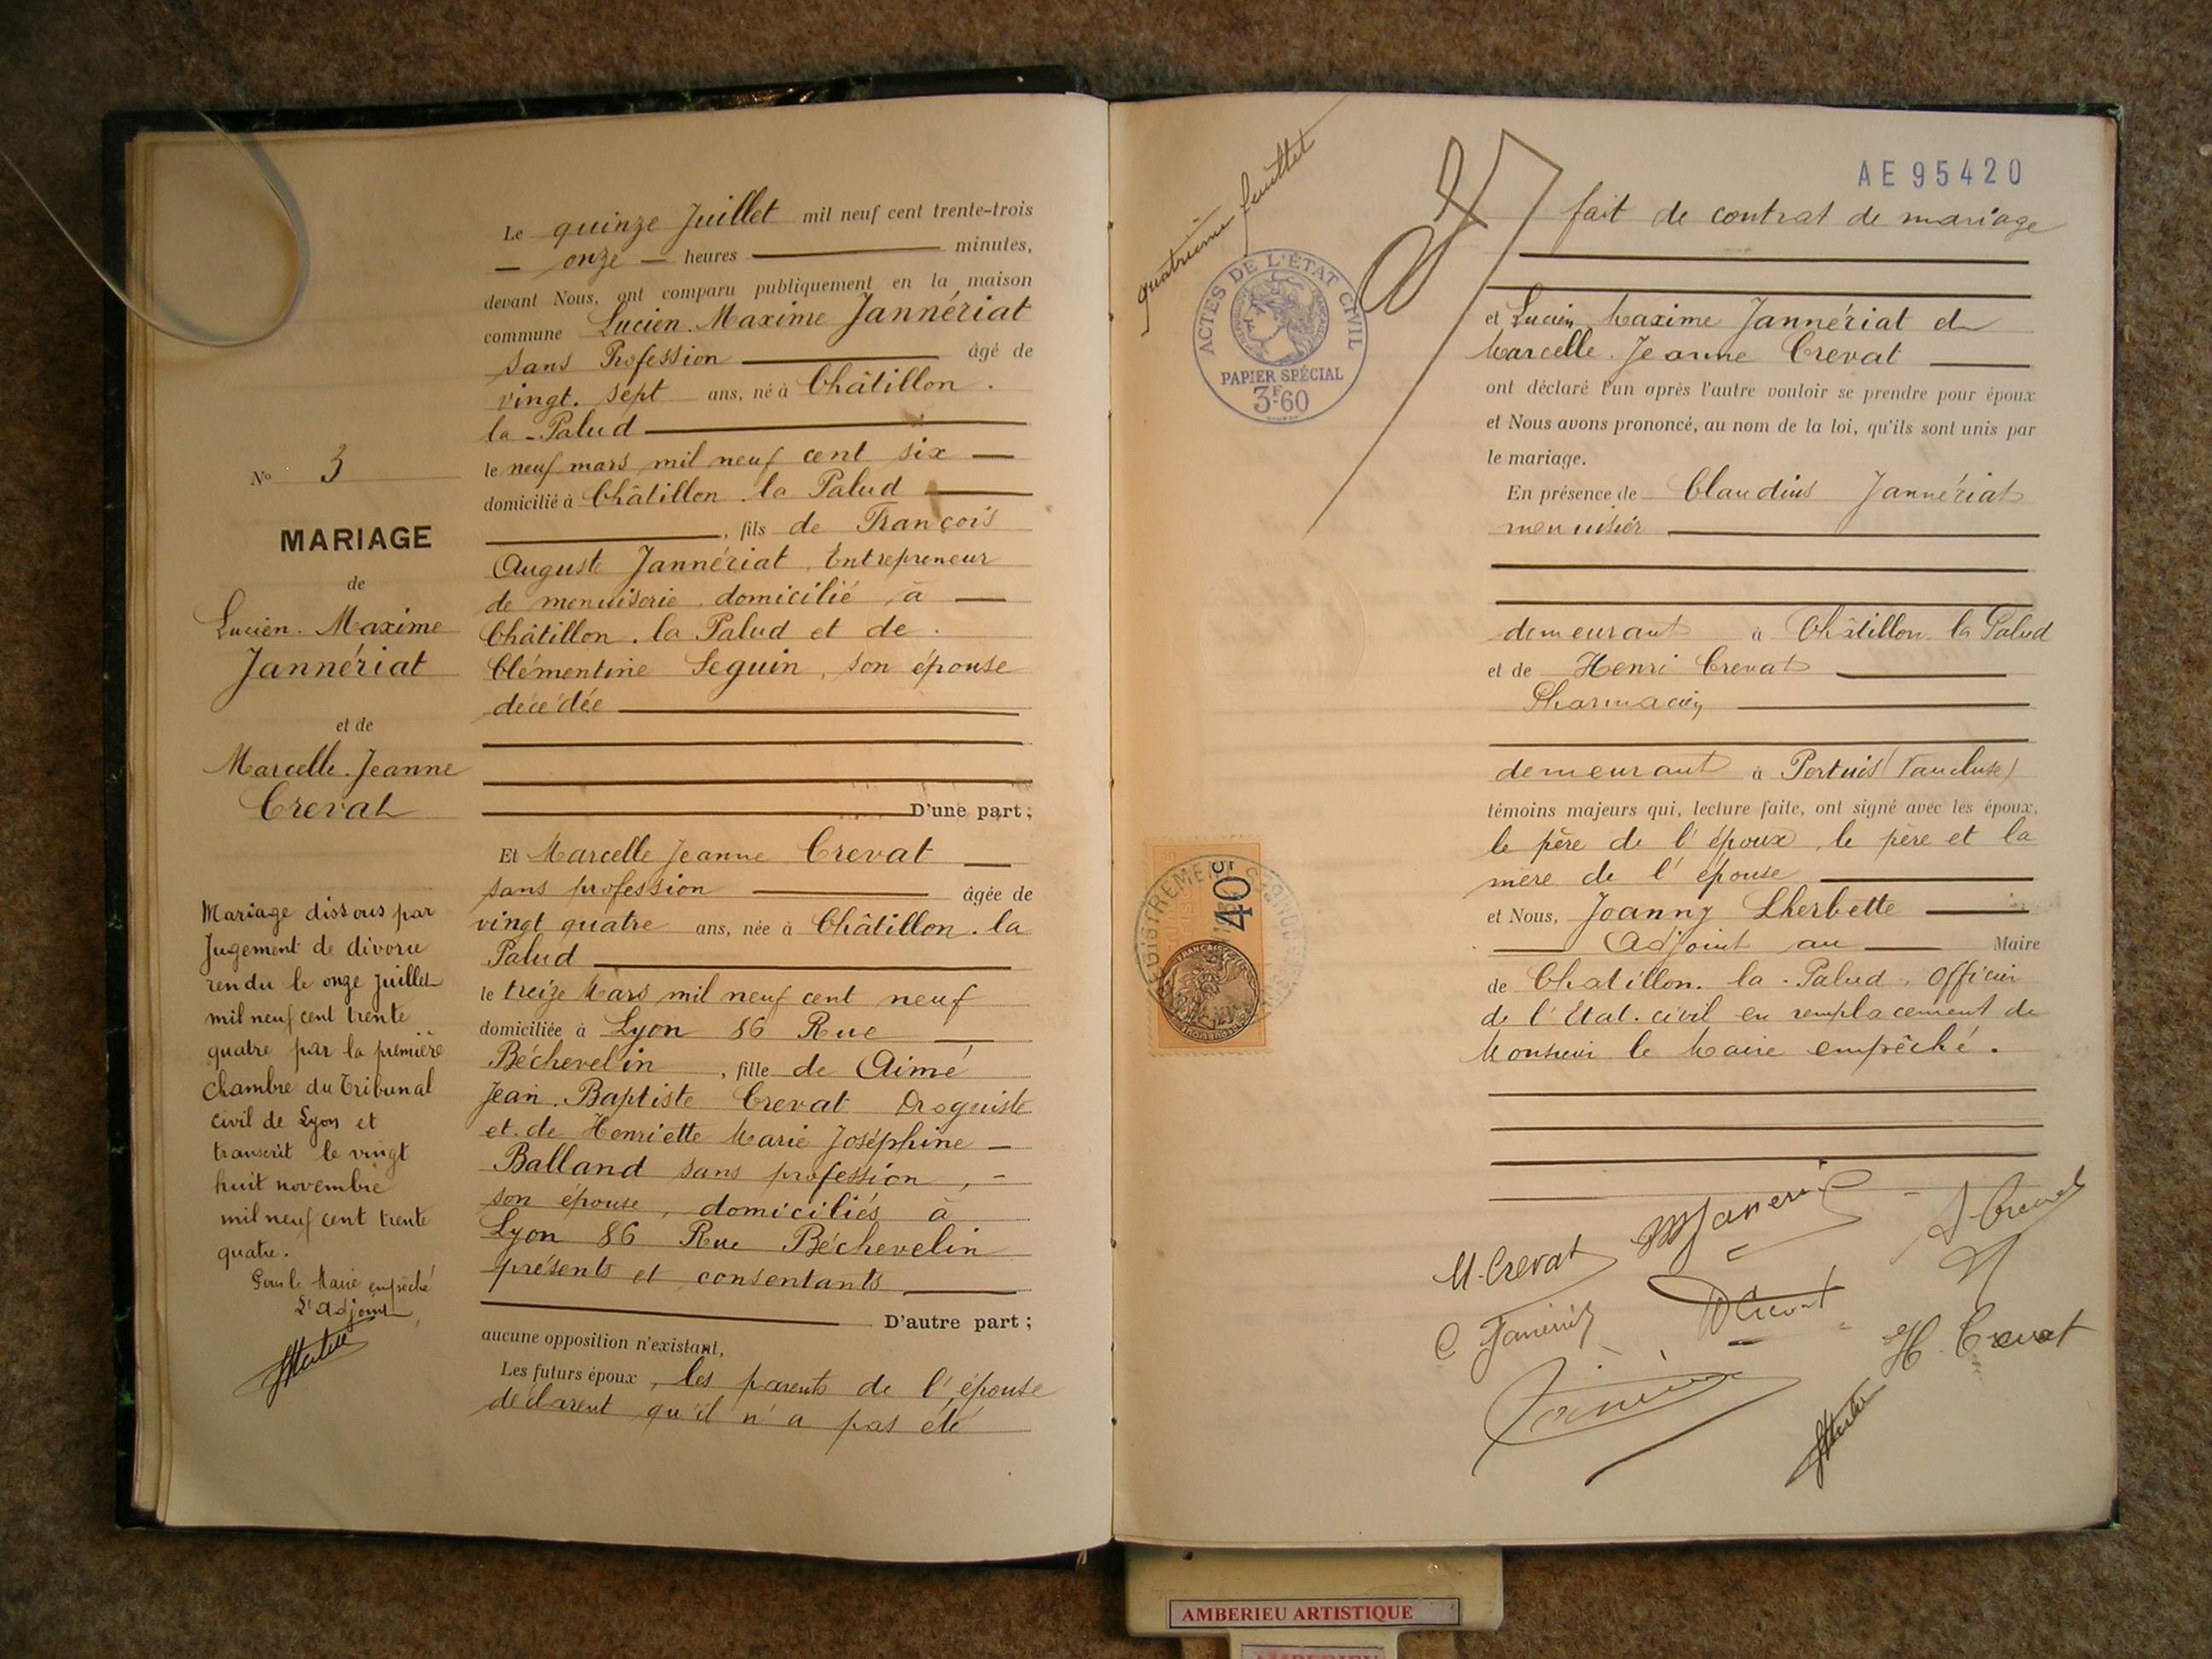 Le quinze Juillet mil neuf cent trente-trois
— onze — heures — minutes,
devant Nous, ont comparu publiquement en la maison
commune Lucien. Maxime Jannériat
sans Profession — âgé de
vingt. sept ans, né à Châtillon.
la-Palud —
le neuf mars mil neuf cent six —
domicilié à Châtillon. la Palud —
—, fils de François
Auguste Jannériat, Entrepreneur
de menuiserie, domicilié à —
Châtillon. la Palud et de.
Clémentine Seguin, son épouse
décédée —
D'une part;
Et Marcelle Jeanne Crevat —
sans profession — âgée de
vingt quatre ans, née à Châtillon. la
Palud —
le treize Mars mil neuf cent neuf
domiciliée à Lyon 86 Rue —
Béchevelin, fille de Aimé
Jean. Baptiste Crevat Droguiste
et. de Henriette Marie Joséphine —
Balland sans profession, -
son épouse, domiciliés à
Lyon 86 Rue Béchevelin
présents et consentants —
— D'autre part;
aucune opposition n'existant,
Les futurs époux, les parents de l'épouse
déclarent qu'il n'a pas été
No 3
MARIAGE
de
Lucien. Maxime
Jannériat
et de
Marcelle. Jeanne
Crevat
Mariage dissous par
Jugement de divorce
rendu le onze juillet
mil neuf cent trente
quatre par la première
chambre du Tribunal
civil de Lyon et
transcrit le vingt
huit novembre
mil neuf cent trente
quatre.
Pour le Maire empêché
L'adjoint,
quatrième feuillet
ACTES DE L'ÉTAT CIVIL
PAPIER SPÉCIAL
3F.60
AE 95420
fait de contrat de mariage
et Lucien Maxime Jannériat et
Marcelle. Jeanne Crevat —
ont déclaré l'un après l'autre vouloir se prendre pour époux
et Nous avons prononcé, au nom de la loi, qu'ils sont unis par
le mariage.
En présence de Claudius Jannériat
menuisier —
demeurant à Châtillon la Palud
et de Henri Crevat —
Pharmacien —
demeurant à Pertuis (Vaucluse)
témoins majeurs qui, lecture faite, ont signé avec les époux,
le père de l'époux, le père et la
mère de l'épouse —
et Nous, Joanny Lherbette —
— Adjoint au — Maire
de Chatillon. la-Palud, Officier
de l'Etat. civil en remplacement de
Monsieur le Maire empêché.
40c
M. Crevat
H. Crevat
AMBERIEU ARTISTIQUE
AMBERIEU